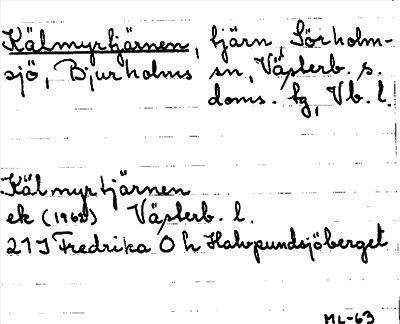 Kälmyrtjärnen, tjärn, Sörholm-
sjö, Bjurholms sn, Västerb. s.
doms. tg, Vb. l.
Kälmyrtjärnen
ek (1962) Västerb. l.
21 J Fredrika Ö h Halvpundsjöberget
ML-63